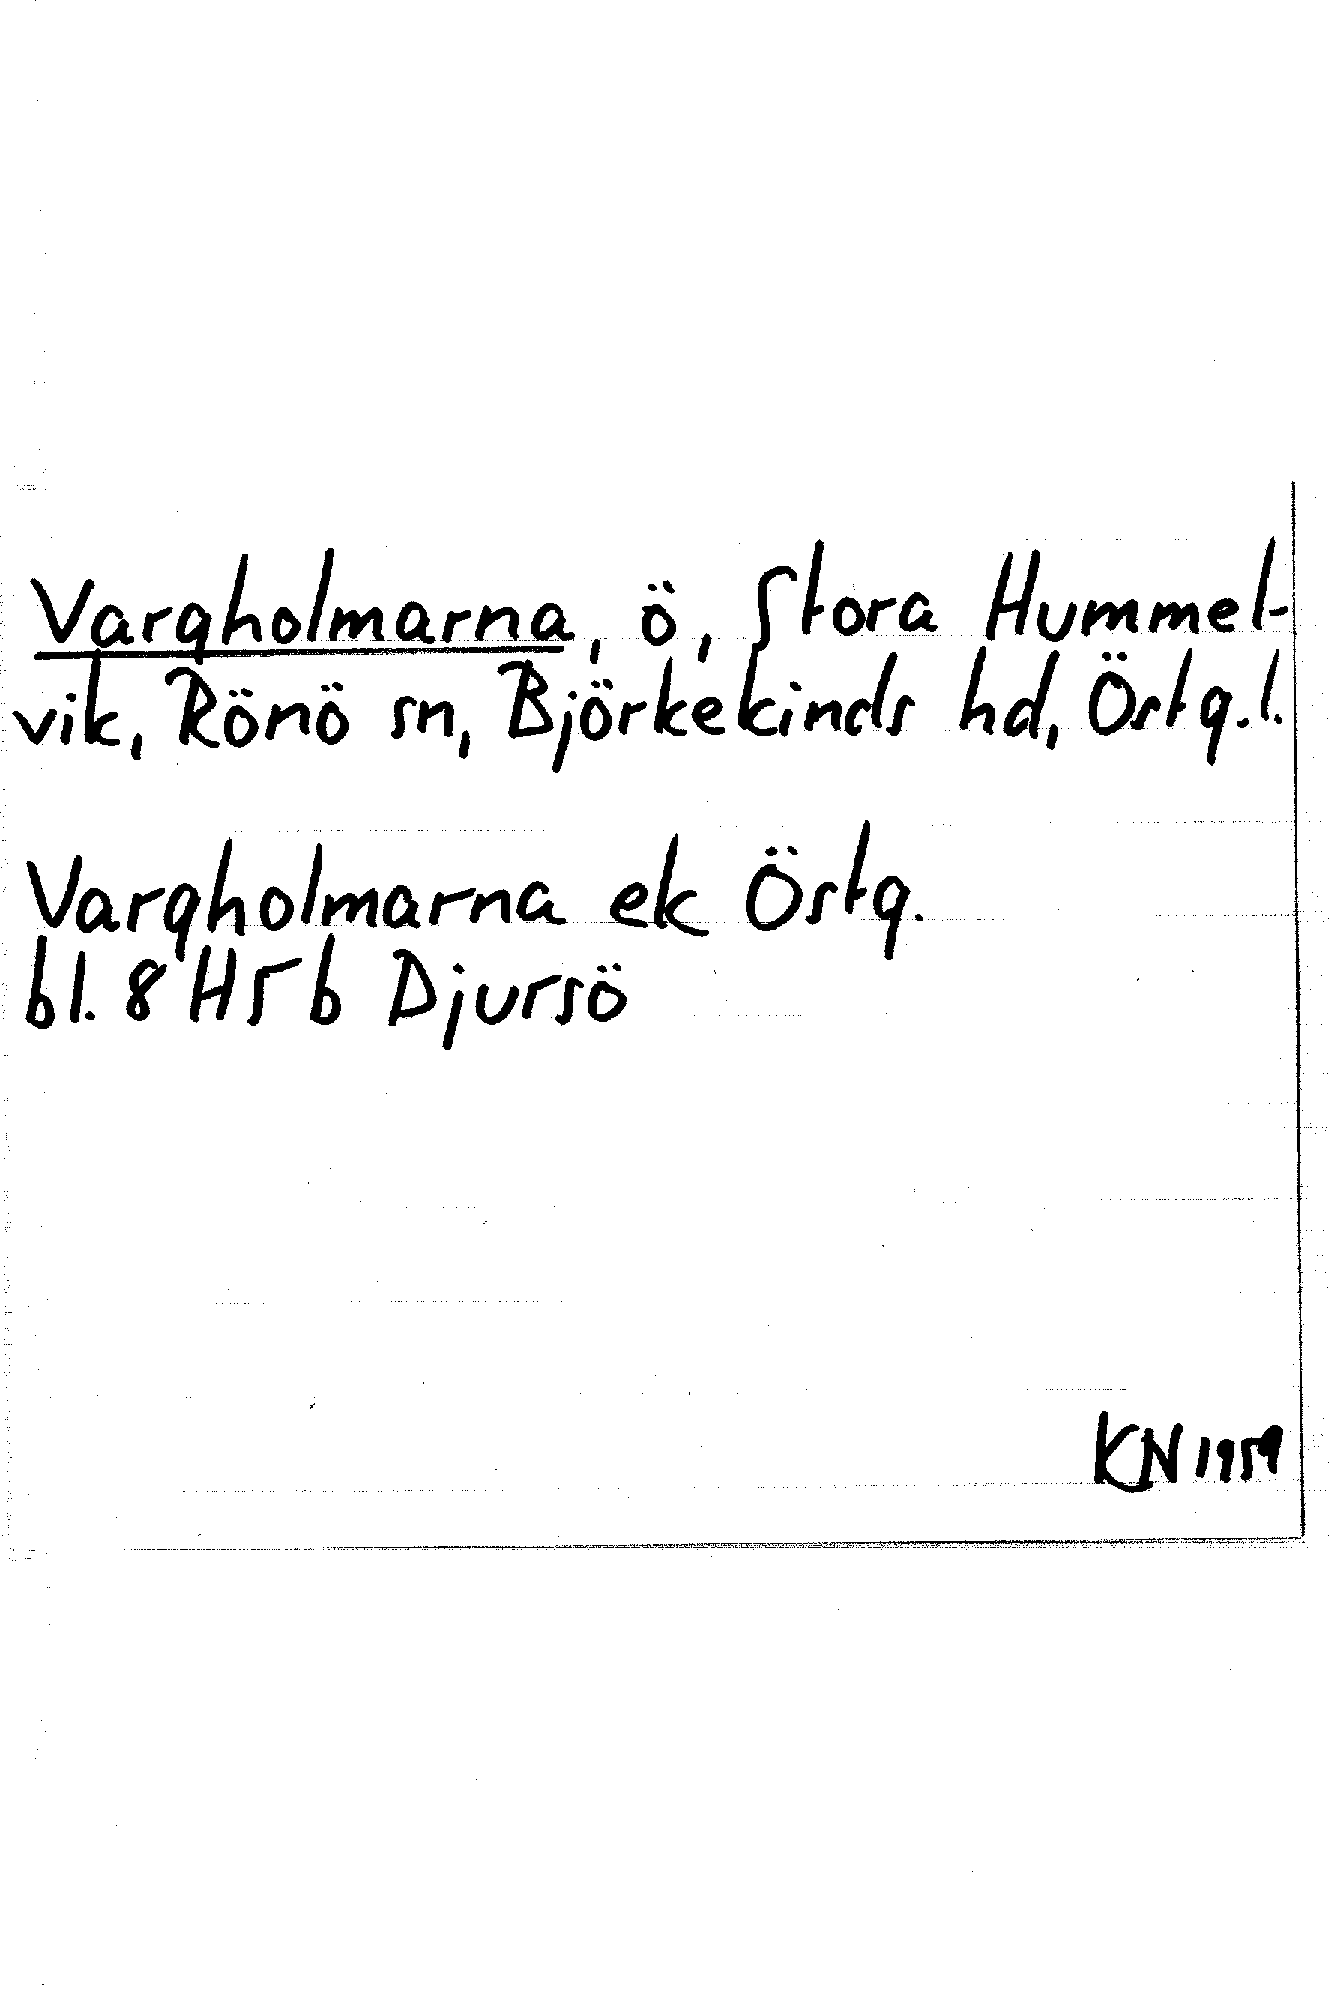 Vargholmarna, ö, Stora Hummel-
vik, Rönö sn, Björkekinds hd, Östg.l.
Vargholmarna ek Östg.
bl. 8 H5b Djursö
KN 1959